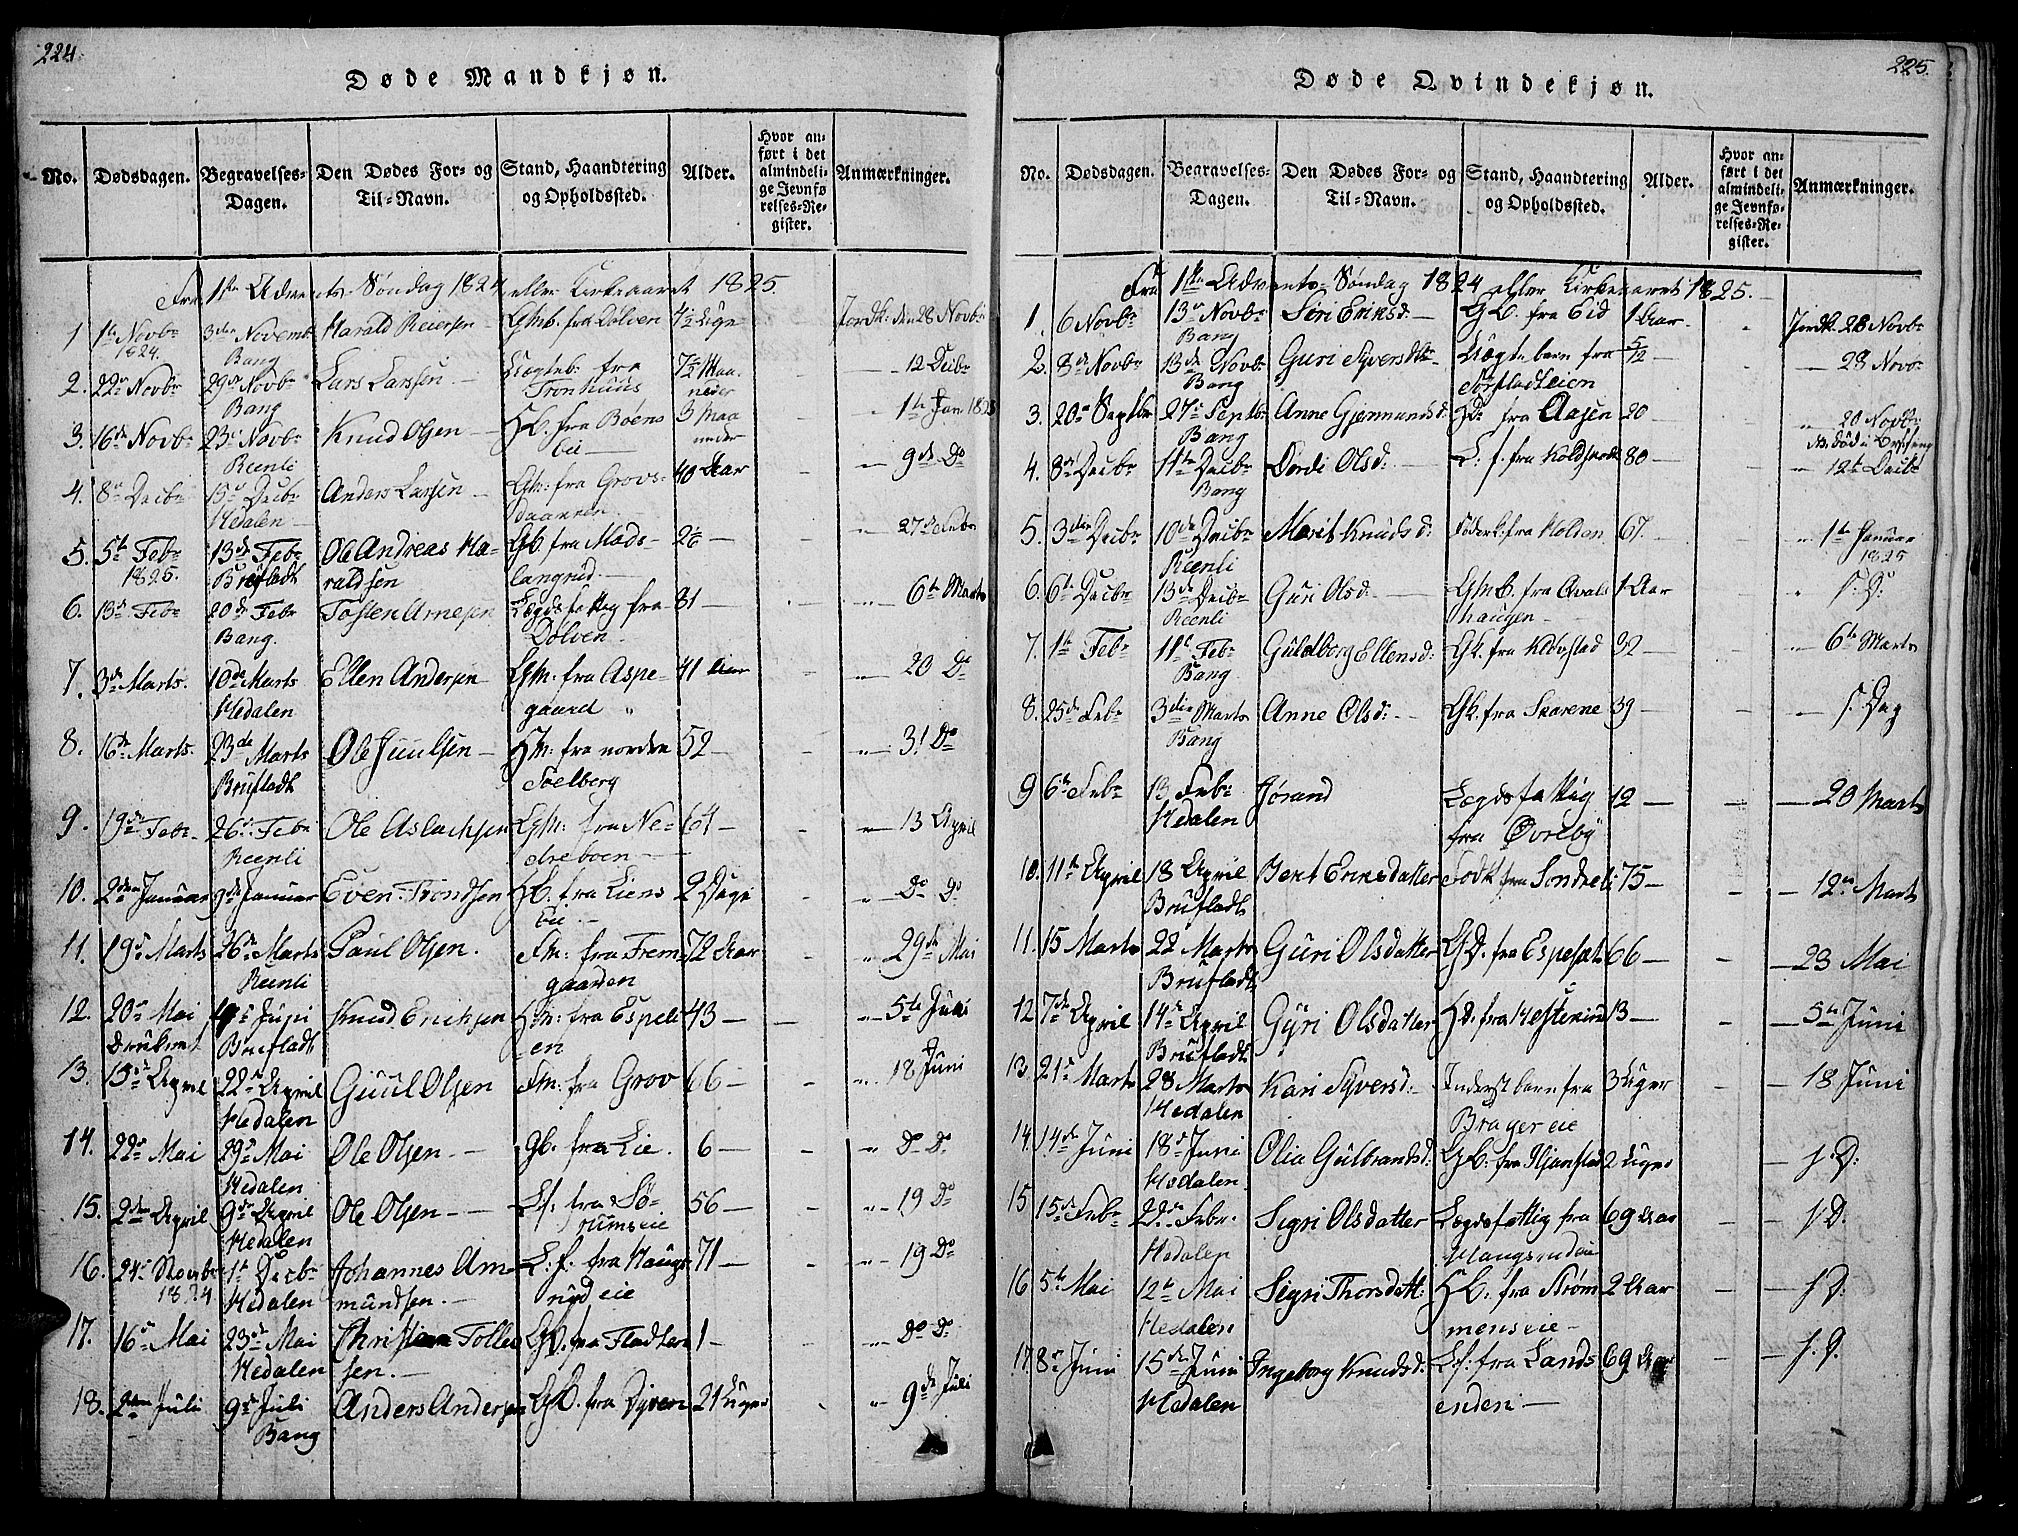 224.
Døde Mandkjøn.
No.
Dødsdagen.
Begravelses-
Dagen.
Den Dødes For- og
Til-Navn.
Stand, Haandtering
og Opholdssted.
Alder.
Hvor an-
ført i det
almindeli-
ge Jevnfø
relses-Re-
gister.
Anmærkninger.
Fra 1ste Advents Søndag 1824 eller Kirkeaaret 1825.
1 1te Novbr 3die Novemb: Harald Reiersen Gmb. fra Dølven 4½ Uge Jordk: den 28 Novbr
1824. Bang
2. 22de Novbr 29de Novbr Lars Larssen Lægdeb. fra 7½ Maa- 12 Decbr
Bang Tronhuus neder
3. 16de Novbr 23de Novbr Knud Olsen Hb. fra Boens 3 Maa 1te Jan 1825
Reenli eie neder
4. 8de Decbr 15de Decbr Anders Larsen Gm: fra Grovs- 40 Aar 9de Do
Hedalen daaneren
5. 5te Febr 13de Febr Ole Andreas Ha- Gb. fra Mads- 2 27de Febr
1825. Brufladt raldsen langrud
6. 13de Febr 20de Febr Tosten Arnesen Lægdsfattig fra 81 6te Marts
Bang. Dølven
7. 3die Marts. 10de Marts Ellen Andersen Gm: fra Aspe- 41 Aar 20 Do
Hedalen gaard
8. 16de Marts. 23de Marts Ole Juulsen Hm: fra nordre 52 31 Do
Brufladt Soelberg
9. 19de Febr 26de Febr Ole Aslachsen Gm: fra Ne- 64 13 April
Reenli dreboen
10. 2den Januar 9de Januar Even Trondsen Hb. fra Liens 2 Dage Do Do
Eie
11. 19de Marts 26de Marts Paul Olsen. Fm: fra Frem- 72 Aar 29de Mai
Reenli gaarden
12. 20de Mai Juni Knud Erichsen Hm: fra Espeli- 43 5te Juni
Druknet Brufladt en
13. 15de April 22de April Guul Olsen Fm: fra Grov 66 18 Juni
Hedalen
14. 22de Mai 29de Mai Ole Olsen Gb. fra Lie. 6 Do Do
Hedalen
15. 2den April 9de April Ole Olsen Lf. fra Sø- 56 19 Do
Hedalen rumseie
16. 24de Novbr 1te Decbr Johannes Am- L: f: fra Haugs- 71 19 Do
1824 Hedalen mundsen. rud eie
17. 16de Mai 23de Mai Christian Tolle Gb. fra Fladten 1 Do Do
Hedalen sen.
18. 2den Juli 9de Juli Anders Andersen Gb. fra Dyven 21 Uger 9de Juli
Bang
225.
Døde Qvindekjøn.
No.
Dødsdagen.
Begravelses-
Dagen.
Den Dødes For- og
Til-Navn.
Stand, Haandtering
og Opholdssted.
Alder.
Hvor an-
ført i det
almindeli-
ge Jevnfø-
relses-Re-
gister.
Anmærkninger.
Fra 1ste Advents-Søndag 1824 eller Kirkeaaret 1825.
1. 6 Novbr 13de Novbr Siri Eriksd. Gb. fra Eid 1 Aar. Jordk: 28 Novbr
Bang
2. 8de Novbr 13de Novbr Guri Syversdtr Lægdebarn fra 5/12 28 Novbr
Bang
3. 20de Septbr 27de Septbr Anne Gjermundsd: Hd: fra Aasen 20 20 Novbr
Bang
4. 8de Decbr 11te Decbr Dordi Olsd: L: f. fra 80 12te Decbr
Bang
5. 3die Decbr 10de Decbr Marit Knudsd: Føderk. fra Holden 67. 1te Januar
Reenli 1825
6. 6te Decbr 13de Decbr Guri Olsd: Gmb. fra Qvals 1 Aar s: D:
Reenli haugen
7. 1te Febr 11te Febr Guldborg Ellensd: Gk. fra Kløvstad 32 6te Marts
Bang
8. 25de Febr 3die Marts Anne Olsd: Gk. fra Skarene 39 s. Dag
Bang
9 6te Febr 13 Febr Jørand Lægdsfattig 12 20 Marts
Hedalen fra Øvreby
10. 11te April 18 April Berit Eriksdatter Fodk fra Søndreli 75 12te Marts
Brufladt
11. 15 Marts 22 Marts Guri Olsdatter Gd. fra Espeset 66 23 Mai
Brufladt
12 7de April 14de April Gyri Olsdatter Hd. fra Hestekind 13 5te Juni
Brufladt
13. 21de Marts 28 Marts Kari Syversd: Inderstbarn fra 3 Uger 18 Juni
Hedalen Brager eie
14. 14de Juni 18de Juni Olia Gulbrandsd: Gb: fra 2 Uger s. D:
Hedalen.
15 15de Febr 22de Febr. Sigri Olsdatter Lægdsfattig fra 69 Aar s. D.
Hedalen Haugsrudeie
16 5te Mai 12te Mai Sigri Thorsdatt. Hb. fra Strøm 2 Aar s. D.
Hedalen menseie
17. 8de Juni 15de Juni Ingeborg Knudsd: L. f: fra Lands 69 Aar s. D.
Hedalen enden